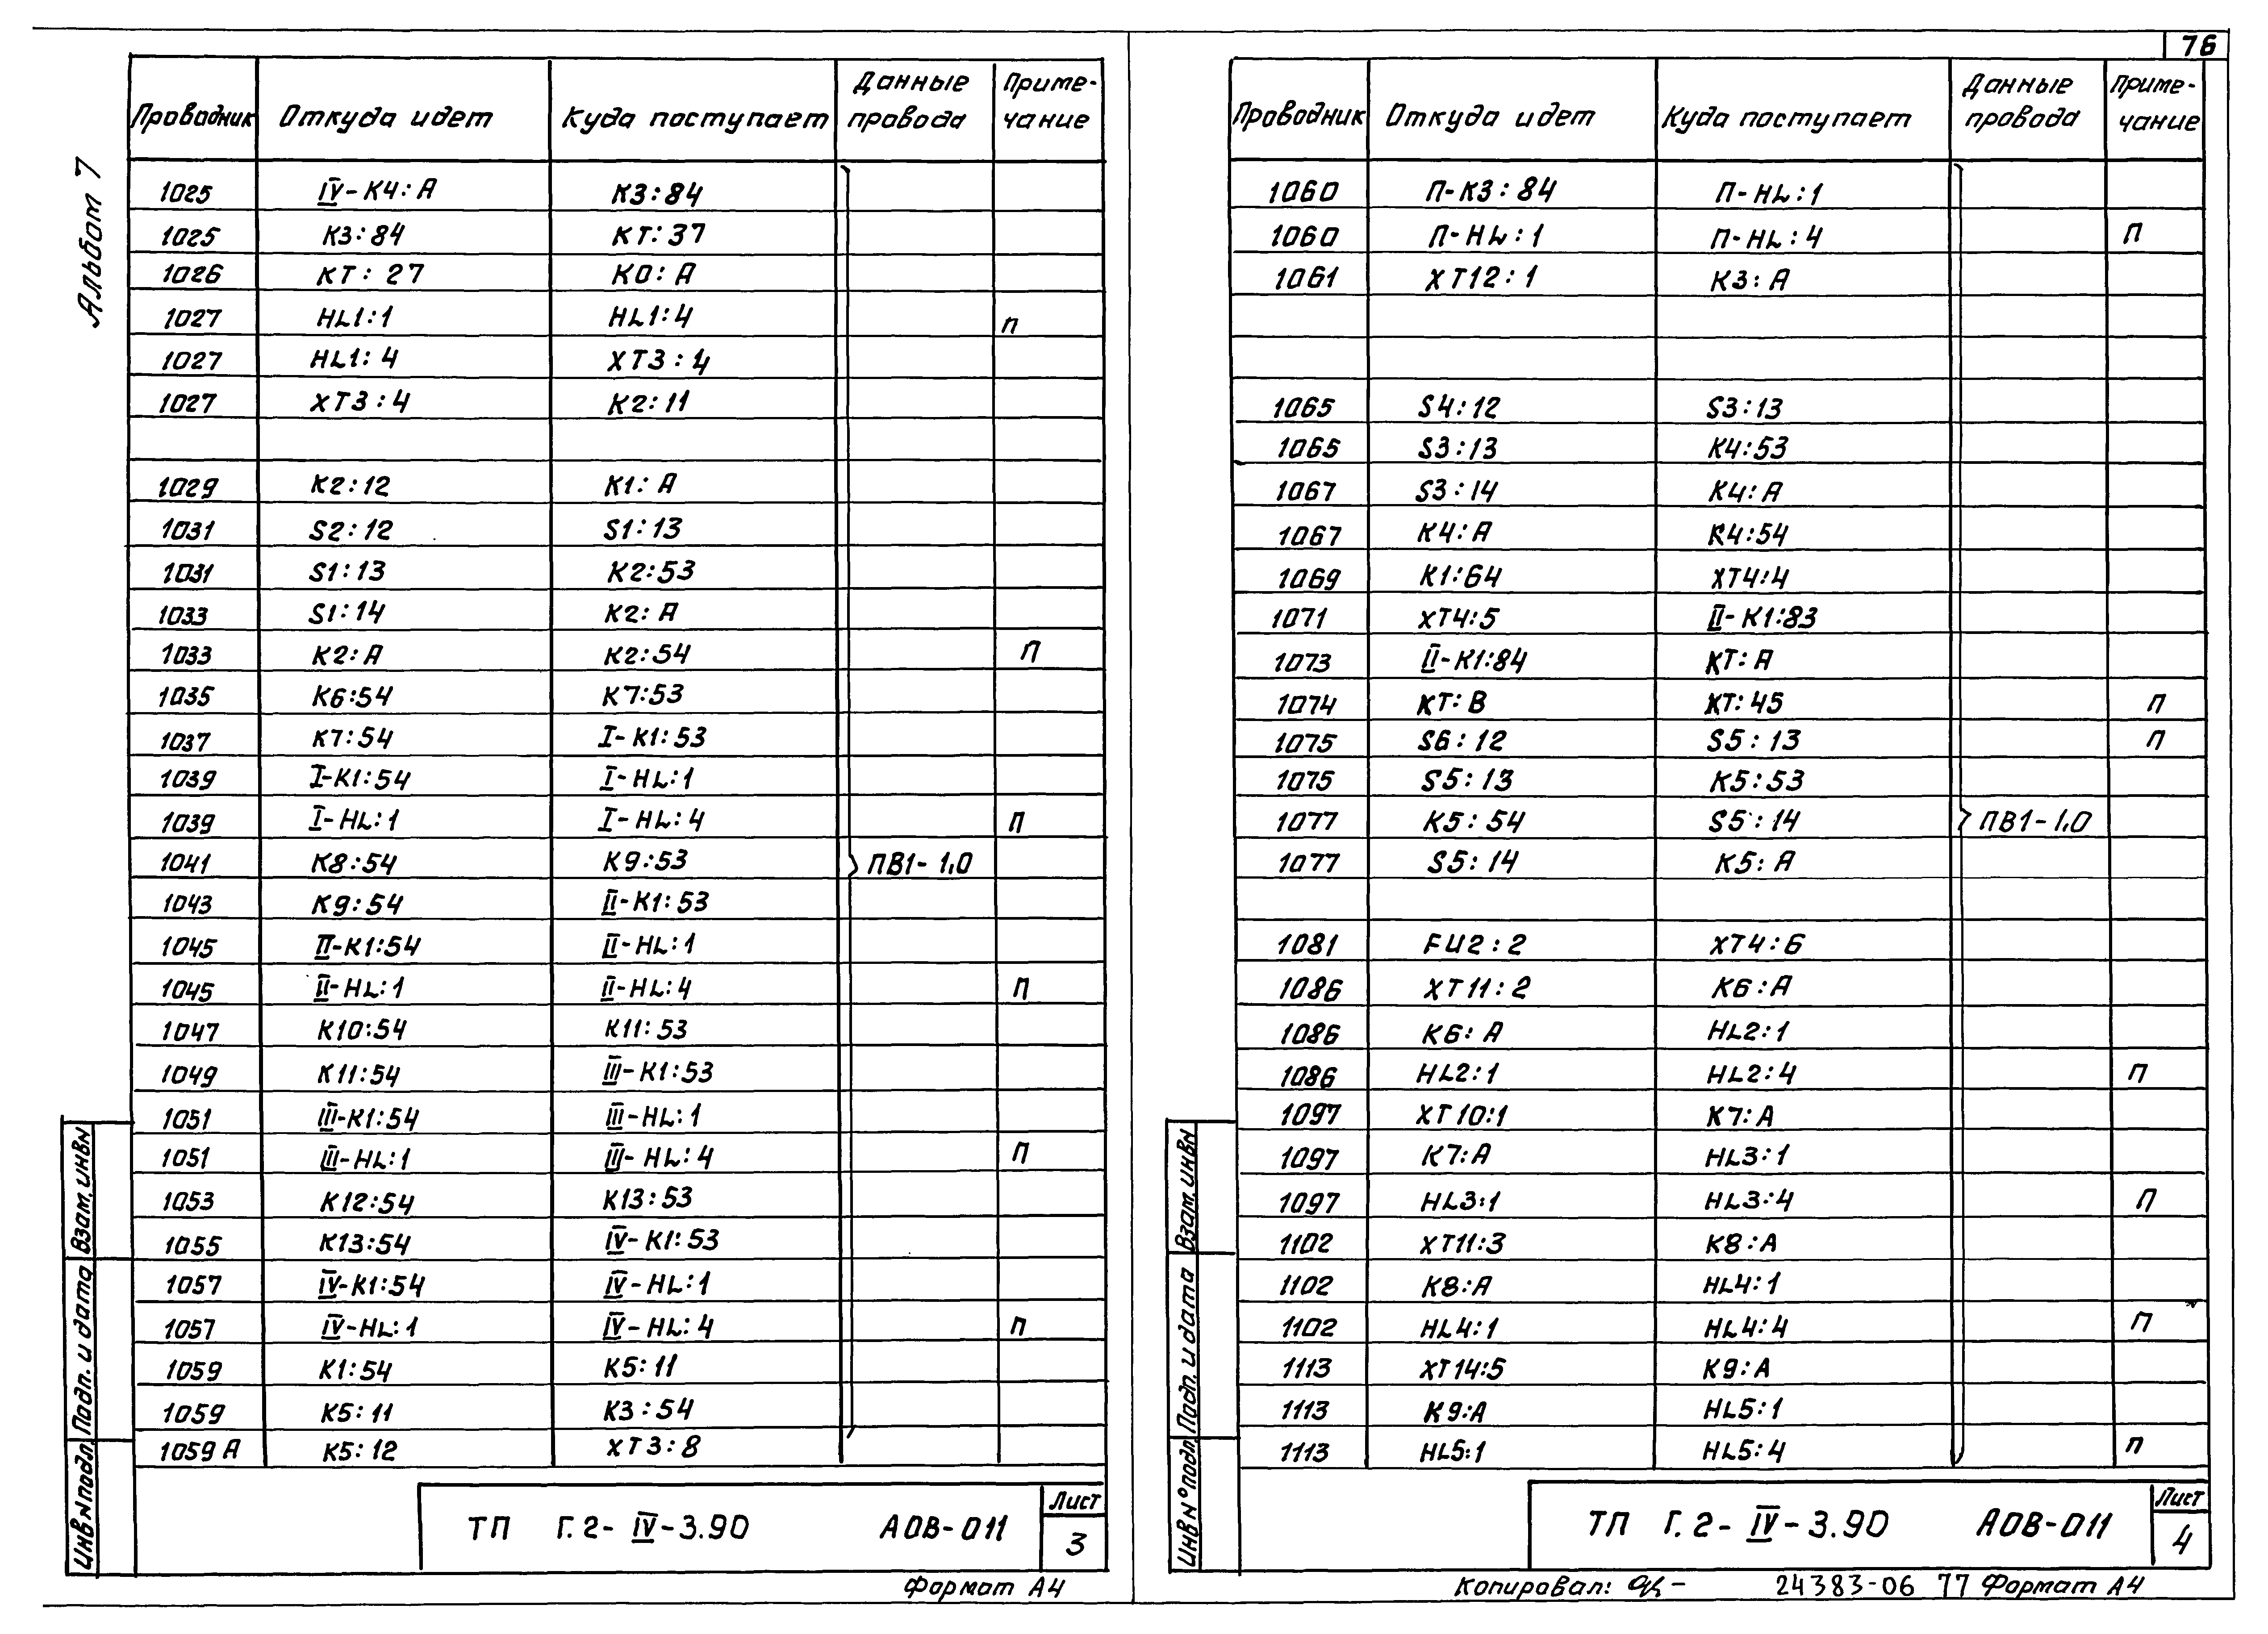 76
Альбом 7
Проводник Откуда идет Куда поступает Данные провода Примечание
1025 IV-К4:А К3:84
1025 К3:84 КТ:37
1026 КТ:27 К0:А
1027 HL1:1 HL1:4 П
1027 HL1:4 ХТ3:4
1027 ХТ3:4 К2:11
1029 К2:12 К1:А
1031 S2:12 S1:13
1031 S1:13 К2:53
1033 S1:14 К2:А
1033 К2:А К2:54 П
1035 К6:54 К7:53
1037 К7:54 I-К1:53
1039 I-К1:54 I-HL:1
1039 I-HL:1 I-HL:4 П
1041 К8:54 К9:53 ПВ1-1,0
1043 К9:54 II-К1:53
1045 II-К1:54 II-HL:1
1045 II-HL:1 II-HL:4 П
1047 К10:54 К11:53
1049 К11:54 III-К1:53
1051 III-К1:54 III-HL:1
1051 III-HL:1 III-HL:4 П
1053 К12:54 К13:53
1055 К13:54 IV-К1:53
1057 IV-К1:54 IV-HL:1
1057 IV-HL:1 IV-HL:4 П
1059 К1:54 К5:11
1059 К5:11 К3:54
1059А К5:12 ХТ3:8
Взам. инв N
Подп. и дата
Инв N подл.
ТП Г.2-IV-3.90 АОВ-011
Лист
3
Формат А4
Проводник Откуда идет Куда поступает Данные провода Примечание
1060 П-К3:84 П-HL:1
1060 П-HL:1 П-HL:4 П
1061 ХТ12:1 К3:А
1065 S4:12 S3:13
1065 S3:13 К4:53
1067 S3:14 К4:А
1067 К4:А К4:54
1069 К1:64 ХТ4:4
1071 ХТ4:5 II-К1:83
1073 II-К1:84 КТ:А
1074 КТ:В КТ:45 П
1075 S6:12 S5:13 П
1075 S5:13 К5:53
1077 К5:54 S5:14 ПВ1-1,0
1077 S5:14 К5:А
1081 FU2:2 ХТ4:6
1086 ХТ11:2 К6:А
1086 К6:А HL2:1
1086 HL2:1 HL2:4 П
1097 ХТ10:1 К7:А
1097 К7:А HL3:1
1097 HL3:1 HL3:4 П
1102 ХТ11:3 К8:А
1102 К8:А HL4:1
1102 HL4:1 HL4:4 П
1113 ХТ14:5 К9:А
1113 К9:А HL5:1
1113 HL5:1 HL5:4 П
Взам. инв N
Подп. и дата
Инв N° подл
ТП Г.2-IV-3.90 АОВ-011
Лист
4
Копировал: 24383-06 77 Формат А4